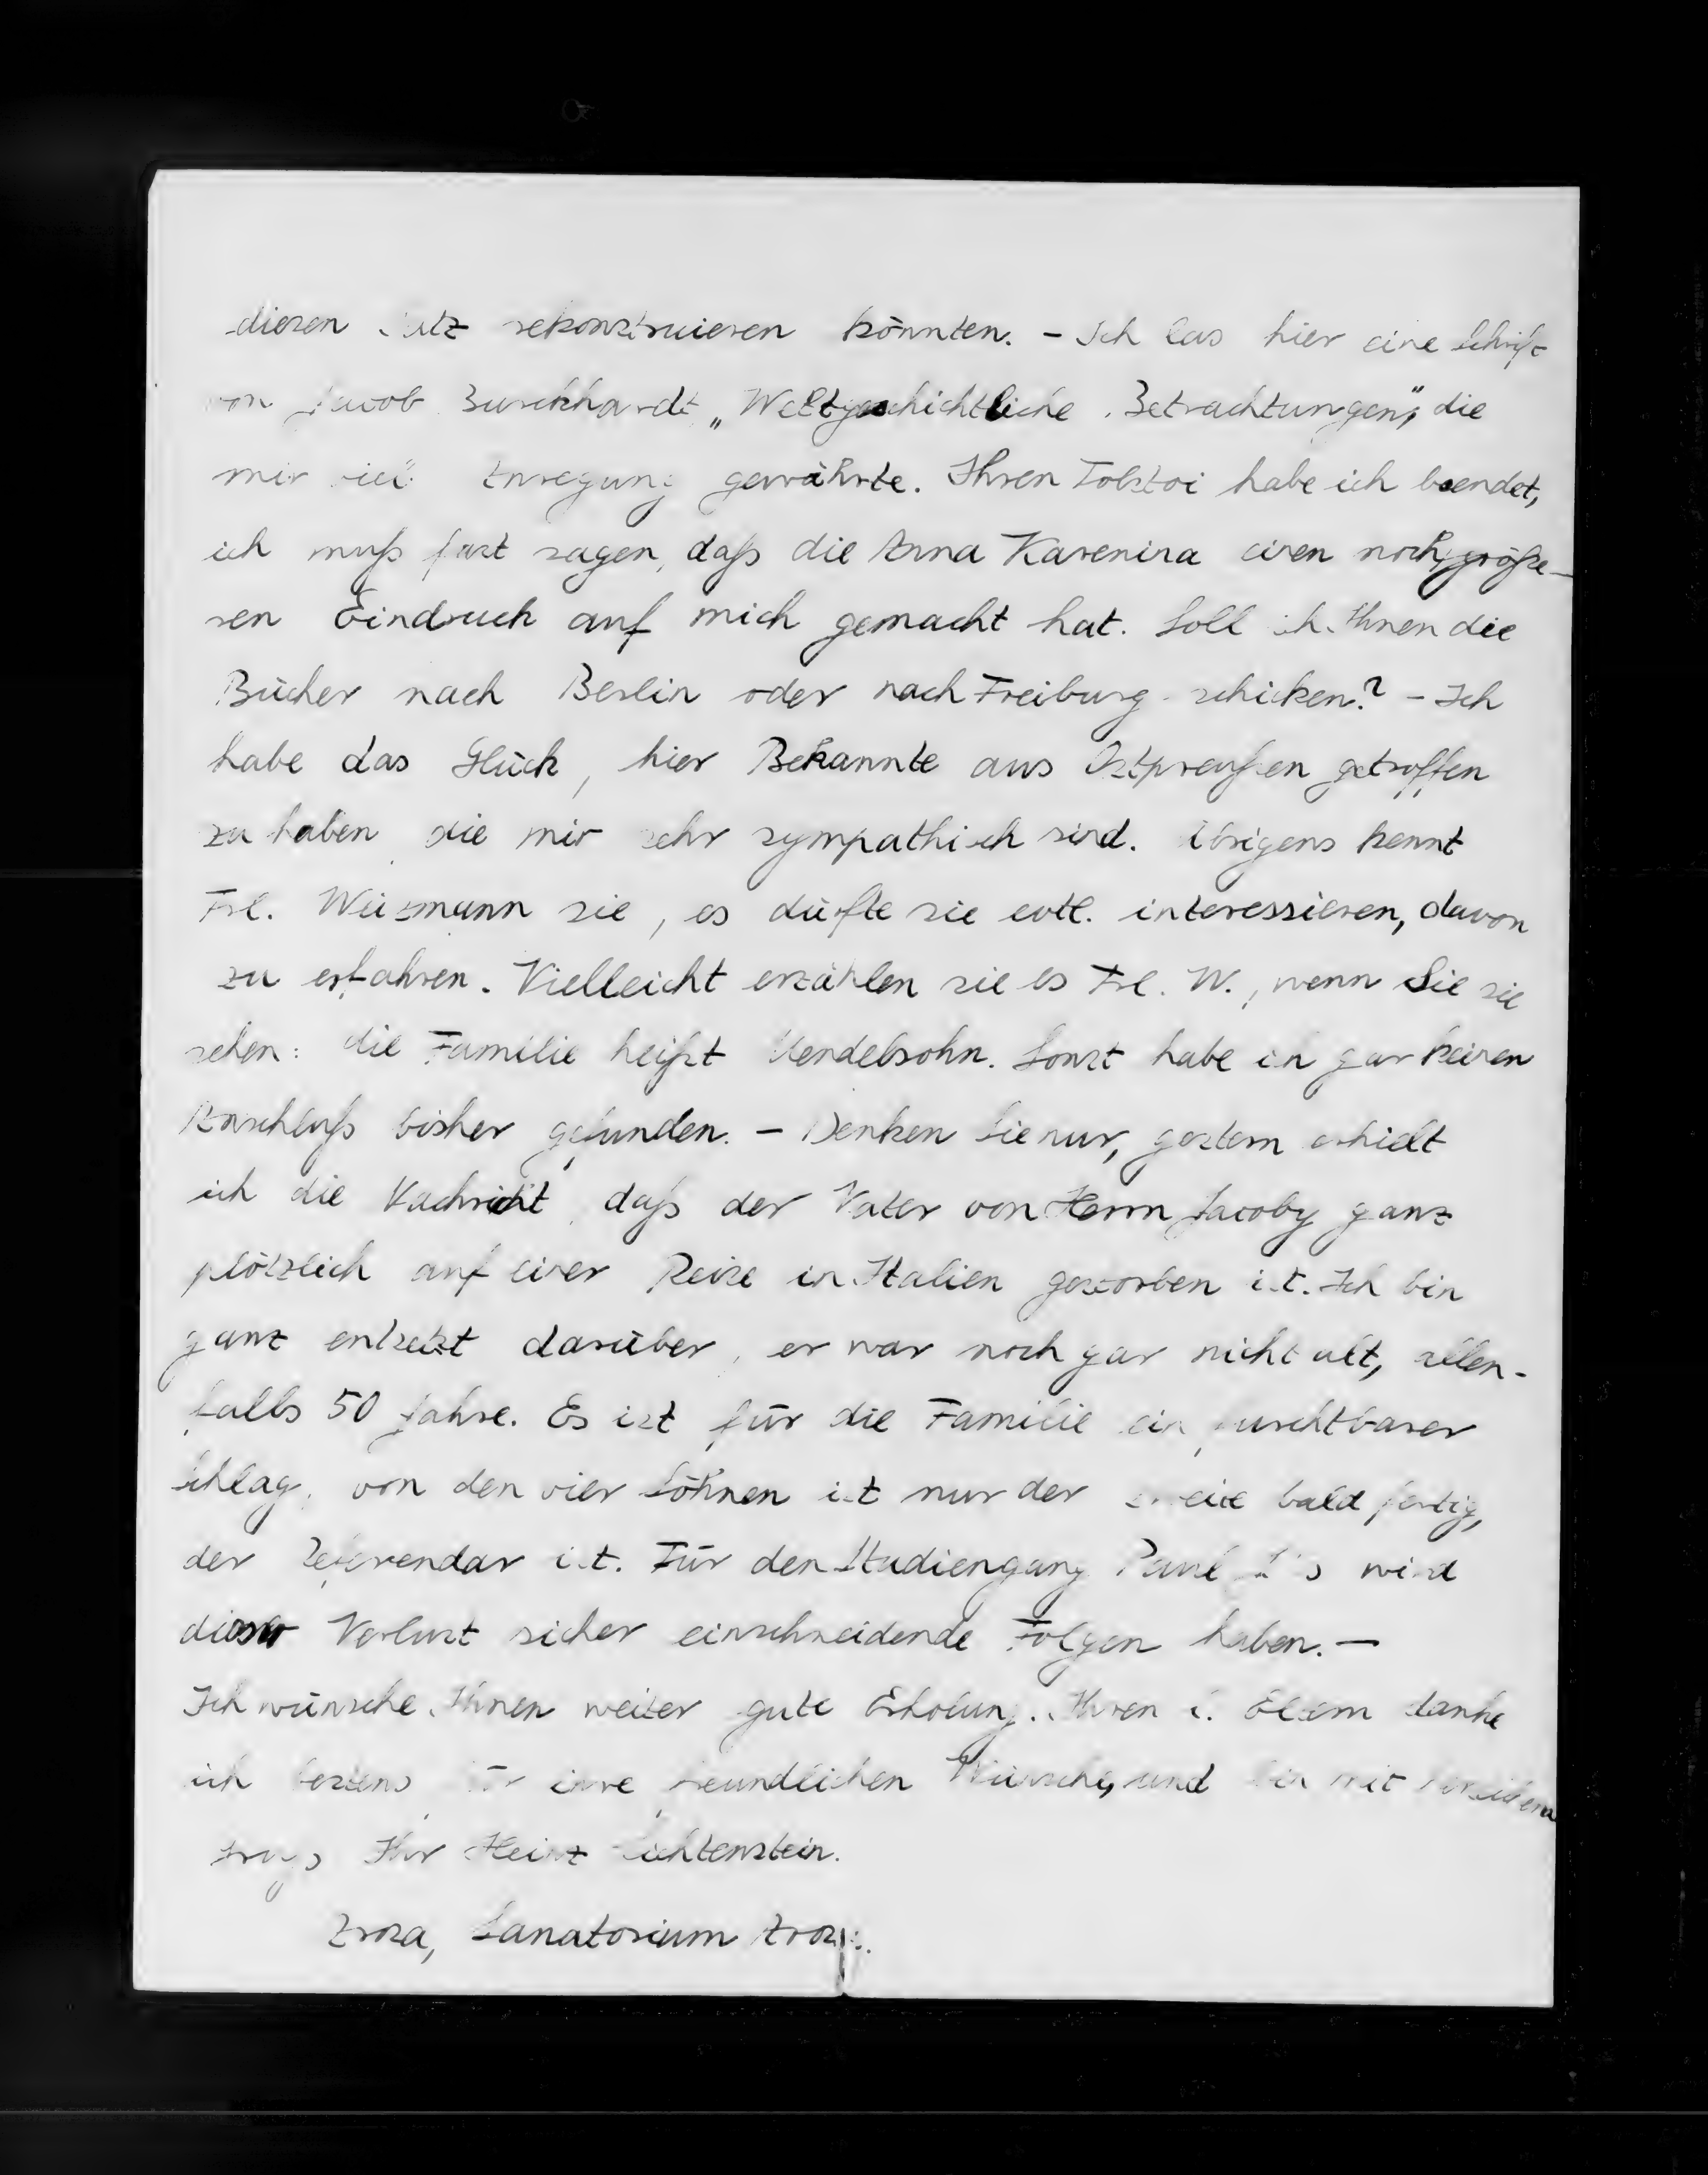 diesen Satz rekonstruieren könnten. – Ich las hier eine Schrift
von Jacob Burckhardt „Weltgeschichtliche Betrachtungen“, die
mir viel Anregung gewährte. Ihren Tolstoi habe ich beendet,
ich muß fast sagen, daß die Anna Karenina einen noch größe-
ren Eindruck auf mich gemacht hat. Soll ich Ihnen die
Bücher nach Berlin oder nach Freiburg schicken? – Ich
habe das Glück, hier Bekannte aus Ostpreußen getroffen
zu haben, die mir sehr sympathisch sind. Übrigens kennt
Frl. Weizmann sie, es dürfte sie evtl. interessieren, davon
zu erfahren. Vielleicht erzählen sie es Frl. W., wenn Sie sie
sehen: die Familie heißt Mendelsohn. Sonst habe ich gar keinen
Anschluß bisher gefunden. – Denken Sie nur, gestern erhielt
ich die Nachricht, daß der Vater von Herrn Jacoby ganz
plötzlich auf einer Reise in Italien gestorben ist. Ich bin
ganz entsetzt darüber, er war noch gar nicht alt, allen-
falls 50 Jahre. Es ist für die Familie ein furchtbarer
Schlag, von den vier Söhnen ist nur der zweite bald fertig,
der Referendar ist. Für den Studiengang Paul J's wird
dieser Verlust sicher einschneidende Folgen haben. –
Ich wünsche Ihnen weiter gute Erholung. Ihren l. Eltern danke
ich bestens für ihre freundlichen Wünsche, und bin mit
Ihr Heinz Lichtenstein.
Arosa, Sanatorium Arosa.